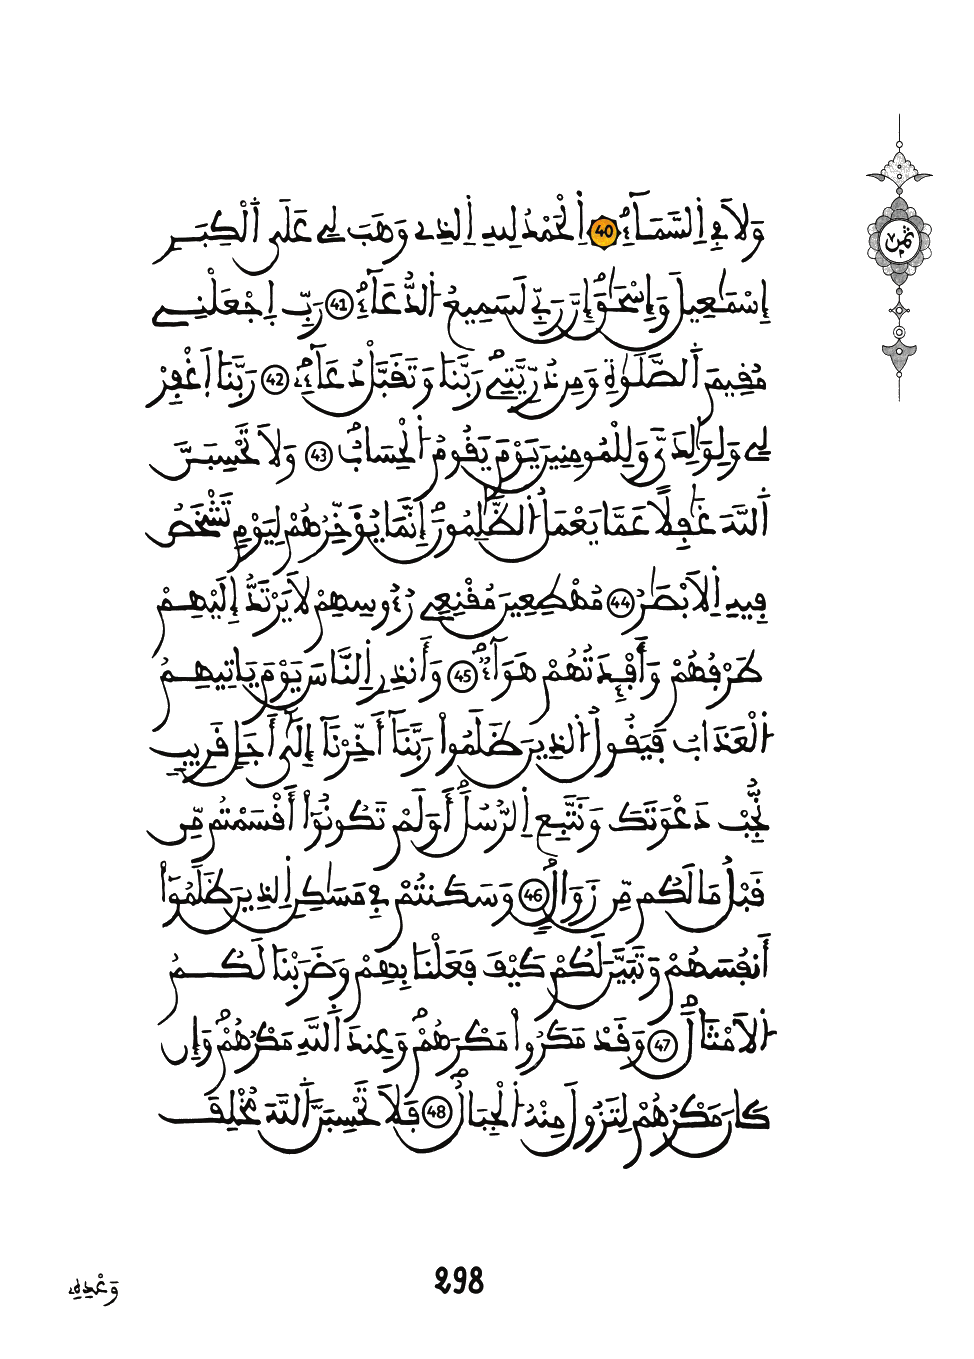 وَلَا فِے اِ۬لسَّمَآءِۖ 40 اِ۬لْحَمْدُ لِلهِ اِ۬لذِے وَهَبَ لِے عَلَى اَ۬لْكِبَرِ
إِسْمَٰعِيلَ وَإِسْحَٰقَۖ إِنَّ رَبِّے لَسَمِيعُ اُ۬لدُّعَآءِۖ 41 رَبِّ اِ۪جْعَلْنِے
مُقِيمَ اَ۬لصَّلَوٰةِ وَمِن ذُرِّيَّتِےۖ رَبَّنَا وَتَقَبَّلْ دُعَآءِۖ 42 رَبَّنَا اَ۪غْفِرْ
لِے وَلِوَٰلِدَيَّ وَلِلْمُومِنِينَ يَوْمَ يَقُومُ اُ۬لْحِسَابُۖ 43 وَلَا تَحْسِبَنَّ
اَ۬للَّهَ غَٰفِلاً عَمَّا يَعْمَلُ اُ۬لظَّٰلِمُونَۖ إِنَّمَا يُؤَخِّرُهُمْ لِيَوْمٖ تَشْخَصُ
فِيهِ اِ۬لَابْصَٰرُ 44 مُهْطِعِينَ مُقْنِعِے رُءُوسِهِمْ لَا يَرْتَدُّ إِلَيْهِمْ
طَرْفُهُمْ وَأَفْـِٕدَتُهُمْ هَوَآءٞۖ 45 وَأَنذِرِ اِ۬لنَّاسَ يَوْمَ يَاتِيهِمُ
اُ۬لْعَذَابُ فَيَقُولُ اُ۬لذِينَ ظَلَمُواْ رَبَّنَآ أَخِّرْنَآ إِلَىٰٓ أَجَلٖ قَرِيبٖ
نُّجِبْ دَعْوَتَكَ وَنَتَّبِعِ اِ۬لرُّسُلَۖ أَوَلَمْ تَكُونُوٓاْ أَقْسَمْتُم مِّن
قَبْلُ مَا لَكُم مِّن زَوَالٖۖ 46 وَسَكَنتُمْ فِے مَسَٰكِنِ اِ۬لذِينَ ظَلَمُوٓاْ
أَنفُسَهُمْ وَتَبَيَّنَ لَكُمْ كَيْفَ فَعَلْنَا بِهِمْ وَضَرَبْنَا لَكُمُ
اُ۬لَامْثَالَۖ 47 وَقَدْ مَكَرُواْ مَكْرَهُمْۖ وَعِندَ اَ۬للَّهِ مَكْرُهُمْۖ وَإِن
كَانَ مَكْرُهُمْ لِتَزُولَ مِنْهُ اُ۬لْجِبَالُۖ 48 فَلَا تَحْسِبَنَّ اَ۬للَّهَ مُخْلِفَ
ثمن
298
وَعْدِهِۦ